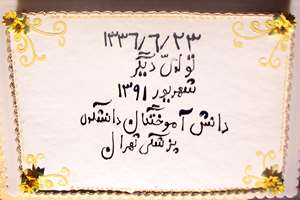 ۱۳۳۶/۶/۲۳
تولدی دیگر
شهریور ۱۳۹۱
دانش آموختگان دانشکده
پزشکی تهران